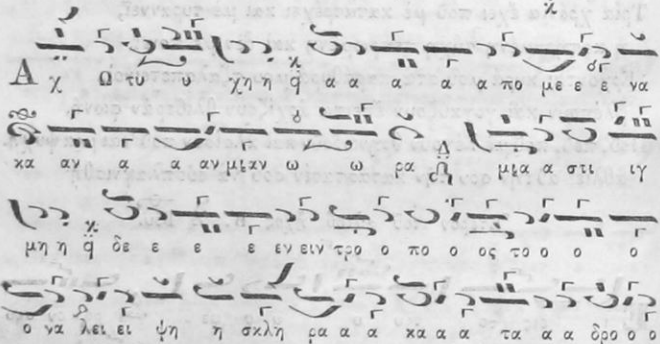 Α χ Ω τυ χη η α α α α α α πο με ε ε να
κα αν α α αν μίαν ω ω ρα μία α στι ιγ
μη η δε ε ε ε εν ειν τρο ο πο ο ος το ο ο ο
ο να λει ει ψη η σκλη ρα α α κα α α τα α α δρο ο ο